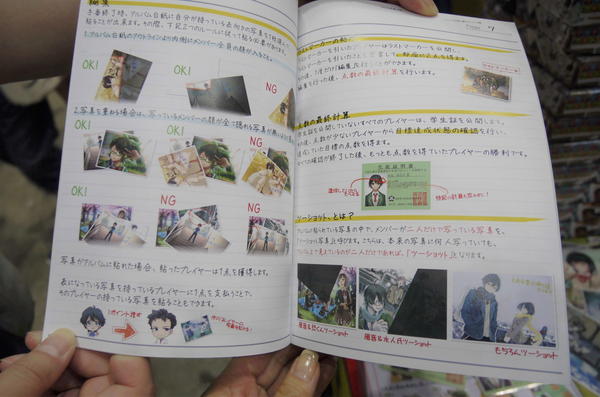 編集
手番終了時、アルバム台紙に自分が持っている表向きの写真を1枚選んで
貼ることが出来ます。その際、下記2つのルールに従って貼る必要があります。
1.アルバム台紙のアウトラインより内側にメンバー全員の顔が入ること。
OK!
OK!
NG
2.写真を重ねる場合は、写っているメンバーの顔が全て隠れる写真が無いように
OK!
OK!
NG
OK!
NG
NG
写真がアルバムに貼れた場合、貼ったプレイヤーは1点を獲得します。
表になっている写真を持っているプレイヤーに1点を支払うことで、
そのプレイヤーの持っている写真を貼ることもできます。
1ポイント渡す
ラストマーカーの
ラストマーカーを引いたプレイヤーはラストマーカーを公開し、
その後、1度だけ「編集」を行うことができます。
編集を行った後、点数の最終計算を行います。
点数の最終計算
学生証を公開していないすべてのプレイヤーは、学生証を公開します。
その後、点数が少ないプレイヤーから目標達成状態の確認を行い、
達成していた目標の点数を得ます。
すべての確認が終了した後、もっとも点数を得ていたプレイヤーの勝利です。
「ツーショット」とは?
アルバムに貼られている写真の中で、メンバーが二人だけで写っている写真を、
「ツーショット写真」と呼びます。こちらは、本来の写真に何人写っていても、
アルバム上で見えているのが二人だけであれば、「ツーショット」となります。
もちろんツーショット